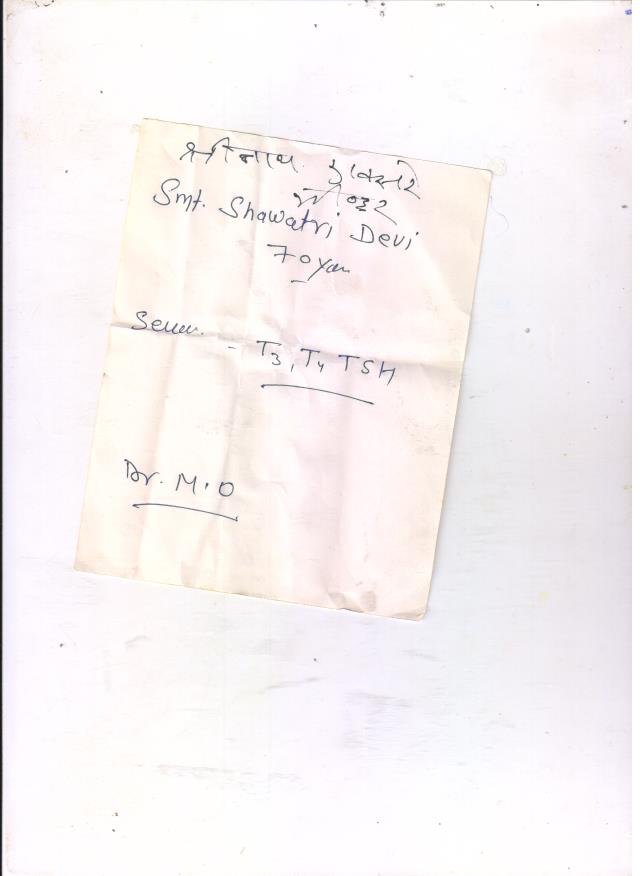 श्रीनाथ
Smt. Shawatri Devi
70 Yrs
Serum - T3, T4 TSH
Dr. M.O